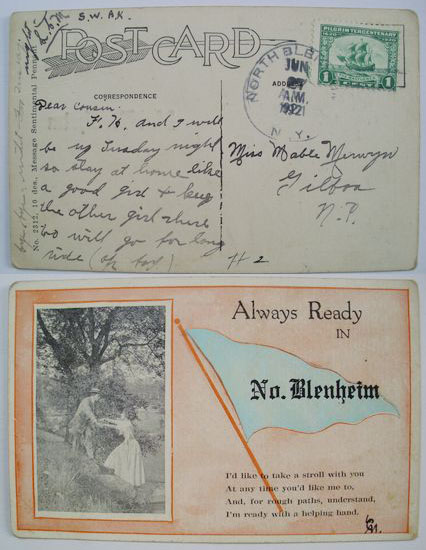 S.W.A.K.
POST CARD
CORRESPONDENCE
No. 2312, 10 des., Message Sentimental Pennant
NORTH BLEN
JUN
A.M.
1921
N.Y.
PILGRIM TERCENTENARY
1 CENT 1
Dear Cousin.
F. H. and I will
be up Tuesday night
so stay at home like
a good girl & keep
the other girl there
too will go for long
ride (oh boy)
Miss Mable Merwyn
Gilboa
N.Y.
# 2
Always Ready
IN
No. Blenheim
I'd like to take a stroll with you
At any time you'd like me to,
And, for rough paths, understand,
I'm ready with a helping hand.